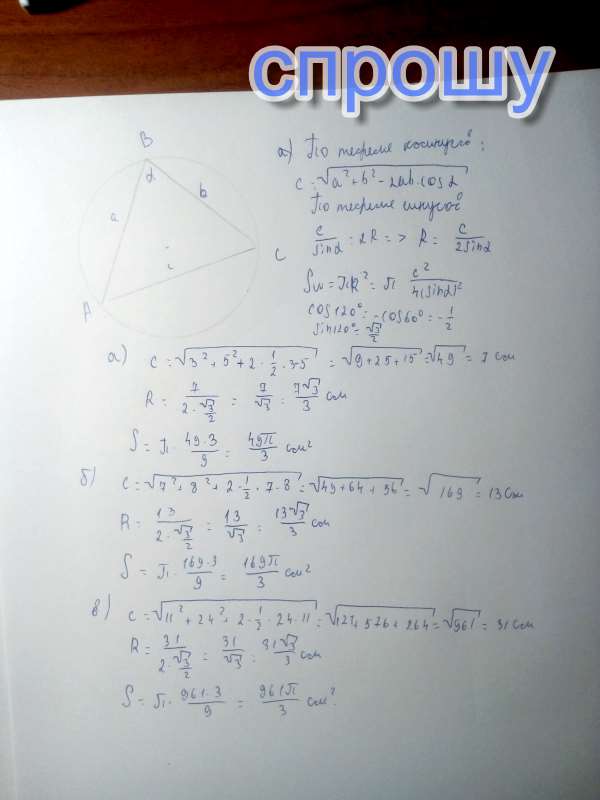 спрошу
B
a) По теореме косинусов:
α
c = √a² + b² - 2ab·cosα
a
b
По теореме синусов
c/sinα = 2R => R = c/2sinα
C
c
Sкр = πR² = π c²/4(sinα)²
A
cos120° = -cos60° = -1/2
sin120° = √3/2
a) c = √3² + 5² + 2·1/2·3·5 = √9+25+15 = √49 = 7 см
R = 7/2·√3/2 = 7/√3 = 7√3/3 см
S = π·49·3/9 = 49π/3 см²
б) c = √7² + 8² + 2·1/2·7·8 = √49+64+56 = √169 = 13 см
R = 13/2·√3/2 = 13/√3 = 13√3/3 см
S = π·169·3/9 = 169π/3 см²
в) c = √11² + 24² + 2·1/2·24·11 = √121+576+264 = √961 = 31 см
R = 31/2·√3/2 = 31/√3 = 31√3/3 см
S = π·961·3/9 = 961π/3 см².